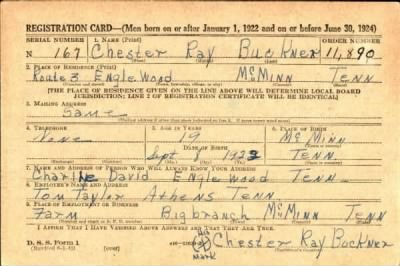 REGISTRATION CARD—(Men born on or after January 1, 1922 and on or before June 30, 1924)
SERIAL NUMBER 1. NAME (Print) ORDER NUMBER
N 167 Chester Ray Buckner 11,890
(First) (Middle) (Last)
2. PLACE OF RESIDENCE (Print)
Route 3 Englewood McMinn Tenn
[THE PLACE OF RESIDENCE GIVEN ON THE LINE ABOVE WILL DETERMINE LOCAL BOARD
JURISDICTION; LINE 2 OF REGISTRATION CERTIFICATE WILL BE IDENTICAL]
3. MAILING ADDRESS
Same
4. TELEPHONE 5. AGE IN YEARS 6. PLACE OF BIRTH
None 19 McMinn
DATE OF BIRTH
Sept Tenn
7. NAME AND ADDRESS OF PERSON WHO WILL ALWAYS KNOW YOUR ADDRESS
David Englewood Tenn
8. EMPLOYER'S NAME AND ADDRESS
Tom Taylor Athens Tenn
9. PLACE OF EMPLOYMENT OR BUSINESS
Farm Bigbranch McMinn Tenn
I AFFIRM THAT I HAVE VERIFIED ABOVE ANSWERS AND THAT THEY ARE TRUE.
D. S. S. Form 1 Chester Ray Buckner
(over) mark